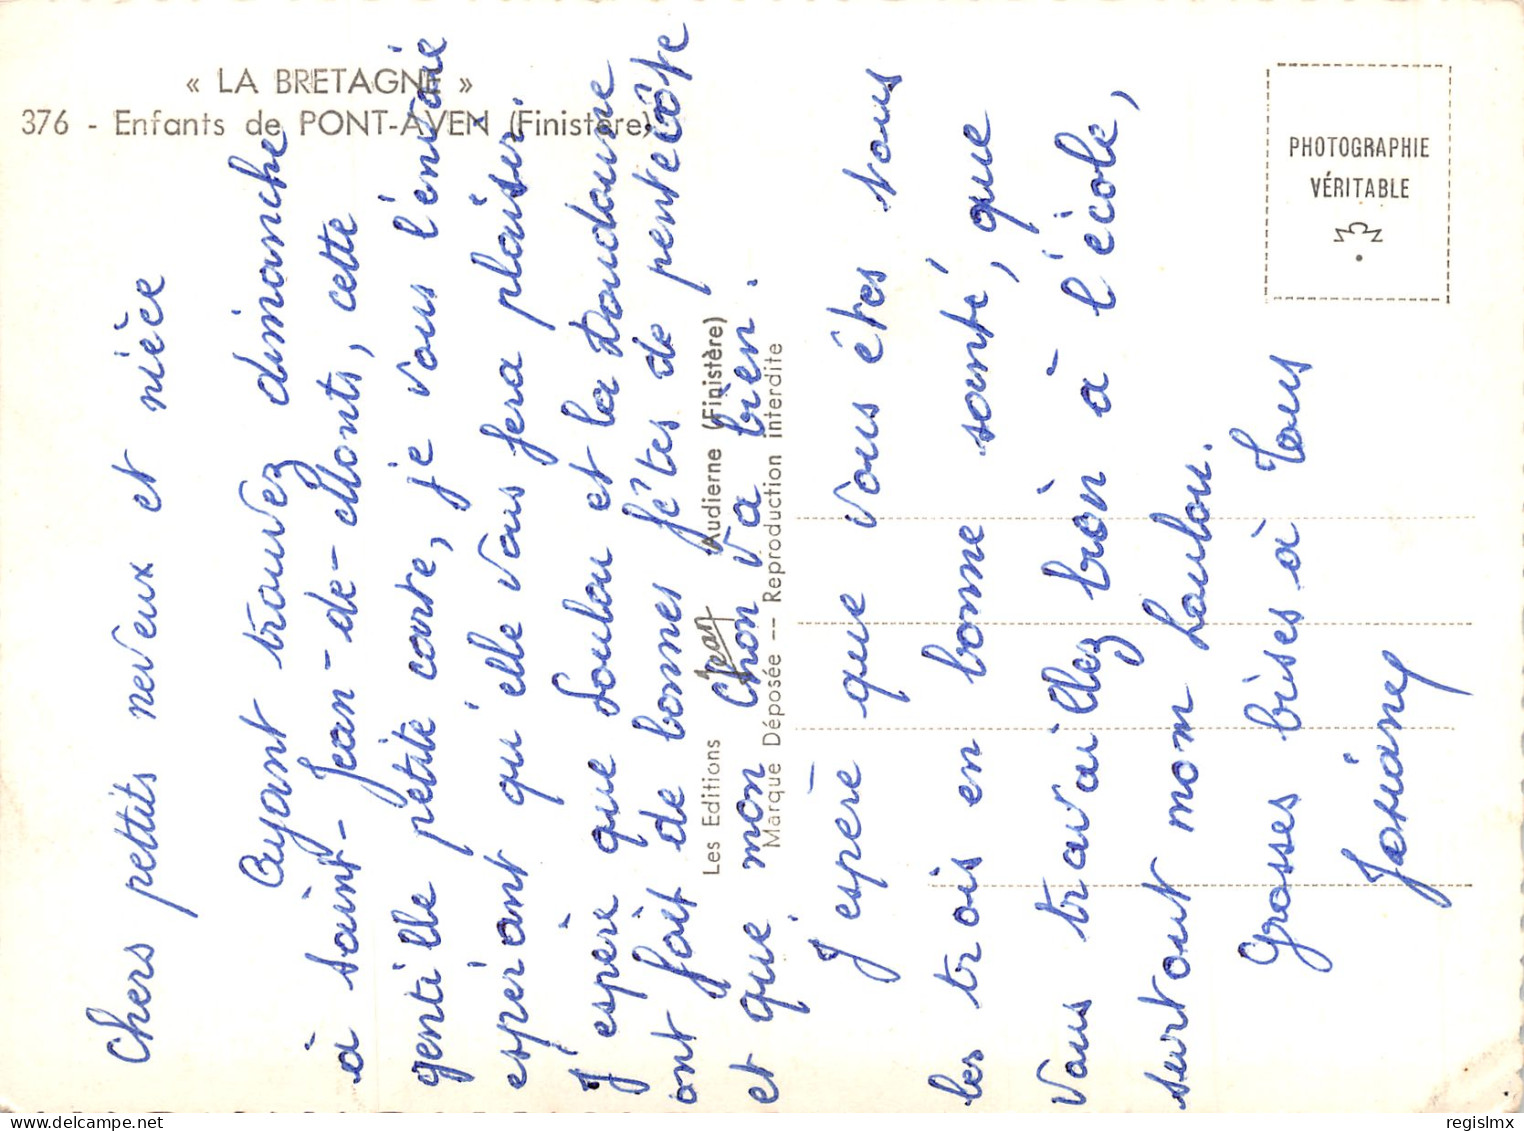 « LA BRETAGNE »
376 - Enfants de PONT-AVEN (Finistère)
PHOTOGRAPHIE
VÉRITABLE
Les Editions Jean Audierne (Finistère)
Marque Déposée -- Reproduction interdite
Chers petits neveux et nièce
Ayant trouvez dimanche
à saint-Jean-de-Monts, cette
gentille petite carte, je vous l'envoie
espérant qu'elle vous fera plaisir.
J'espère que Loulou et la Doudoune
ont fait de bonnes fêtes de pentecôte
et que mon Chon va bien.
J'espère que vous êtes tous
les trois en bonne santé, que
vous travaillez bien à l'école,
surtout mon Loulou.
Grosses bises à tous
Josiane
regislmx